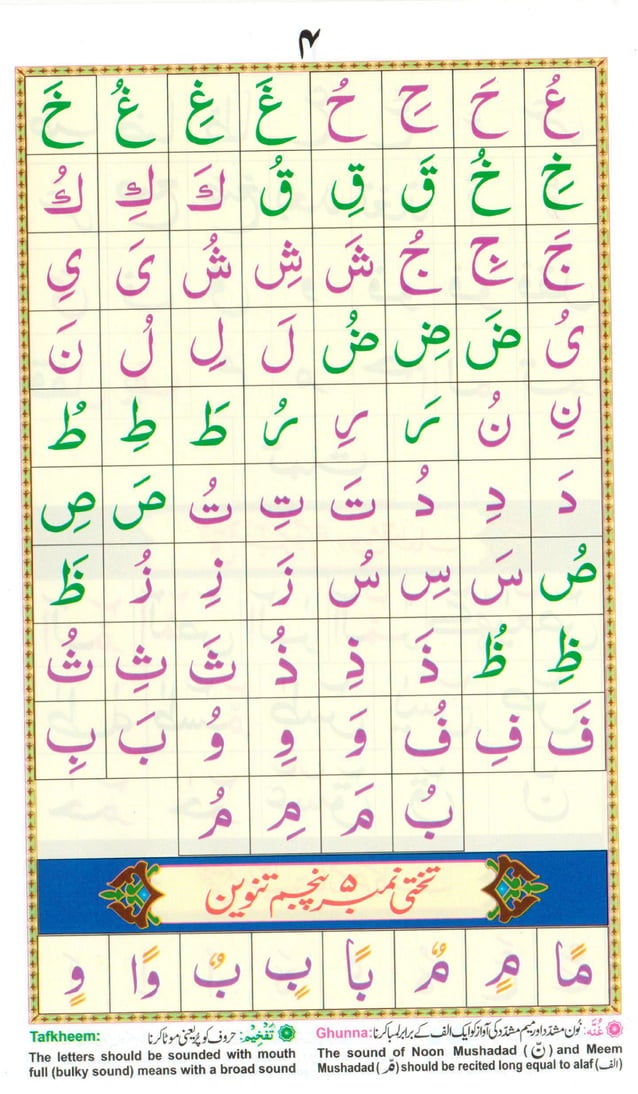 ۴
عُ حَ حِ حُ غَ غِ غُ خَ
خِ خُ قَ قِ قُ كَ كِ كُ
جَ جِ جُ شَ شِ شُ یَ یِ
یُ ضَ ضِ ضُ لَ لِ لُ نَ
نِ نُ رَ رِ رُ طَ طِ طُ
دَ دِ دُ تَ تِ تُ صَ صِ
صُ سَ سِ سُ زَ زِ زُ ظَ
ظِ ظُ ذَ ذِ ذُ ثَ ثِ ثُ
فَ فِ فُ وَ وِ وُ بَ بِ
بُ مَ مِ مُ
تختی نمبر ۵ پنجم تنوین
مًا مٍ مٌ بًا بٍ بٌ وًا وٍ
غُنَّه: نُون مشدّد اور میم مشدّد کی آواز کو ایک الف کے برابر لمبا کرنا :Ghunna
The sound of Noon Mushadad (نّ) and Meem
Mushadad (مّ) should be recited long equal to alaf (الف)
تَفْخِیْم: حروف کو پُر یعنی موٹا کرنا Tafkheem:
The letters should be sounded with mouth
full (bulky sound) means with a broad sound